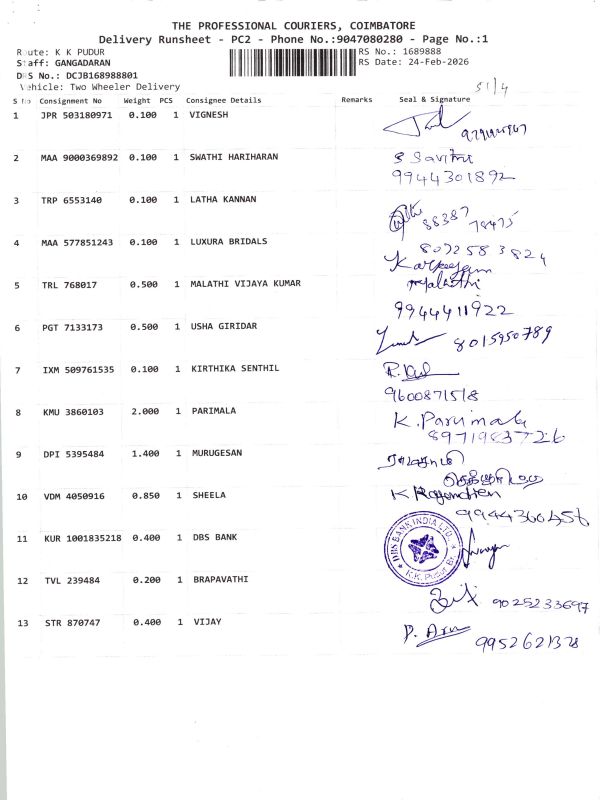 THE PROFESSIONAL COURIERS, COIMBATORE
Delivery Runsheet - PC2 - Phone No.:9047080280 - Page No.:1
Route: K K PUDUR
RS No.: 1689888
Staff: GANGADARAN
RS Date: 24-Feb-2026
DRS No.: DCJB168988801
Vehicle: Two Wheeler Delivery
51/4
S No Consignment No Weight PCS Consignee Details Remarks Seal & Signature
1 JPR 503180971 0.100 1 VIGNESH
2 MAA 9000369892 0.100 1 SWATHI HARIHARAN S Savitri
9944301892
3 TRP 6553140 0.100 1 LATHA KANNAN
88387 78475
4 MAA 577851243 0.100 1 LUXURA BRIDALS 8072583824
Karpagam
5 TRL 768017 0.500 1 MALATHI VIJAYA KUMAR Malathi
9944411922
6 PGT 7133173 0.500 1 USHA GIRIDAR 8015950789
7 IXM 509761535 0.100 1 KIRTHIKA SENTHIL
9600871518
8 KMU 3860103 2.000 1 PARIMALA K. Parimala
8971983726
9 DPI 5395484 1.400 1 MURUGESAN
10 VDM 4050916 0.850 1 SHEELA K Rajendren
9944360456
11 KUR 1001835218 0.400 1 DBS BANK DBS BANK INDIA LTD. K.K. Pudur Br.
12 TVL 239484 0.200 1 BRAPAVATHI 9025233697
13 STR 870747 0.400 1 VIJAY P. Arun 9952621328